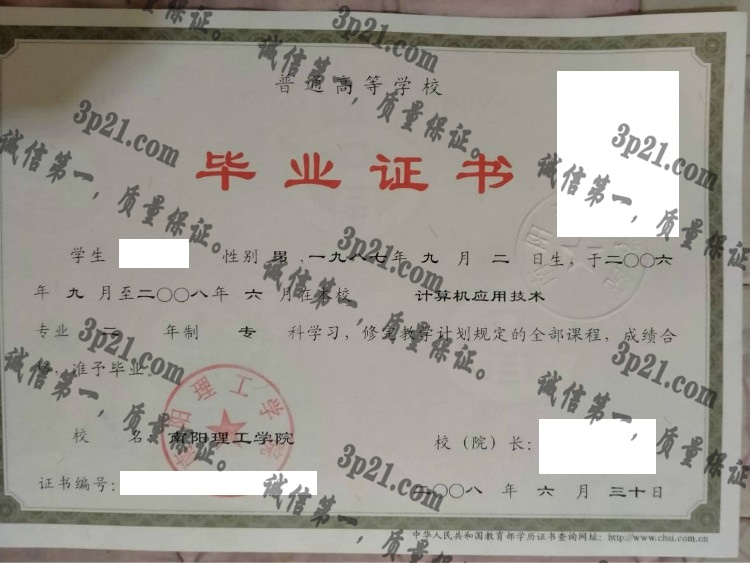 普通高等学校
毕业证书
学生 性别 男 、一九八七年 九 月 二 日生，于二〇〇六
年 九 月至二〇〇八年 六 月在本校 计算机应用技术
专业 二 年制 专 科学习，修完教学计划规定的全部课程，成绩合
格，准予毕业。
校 名 南阳理工学院 校（院）长：
证书编号： 二〇〇八 年 六 月 三十日
中华人民共和国教育部学历证书查询网址：http://www.chsi.com.cn
南阳理工学院
3p21.com
诚信第一，质量保证。
3p21.com
诚信第一，质量保证。
3p21.com
诚信第一，质量保证。
3p21.com
诚信第一，质量保证。
3p21.com
诚信第一，质量保证。
3p21.com
诚信第一，质量保证。
3p21.com
诚信第一，质量保证。